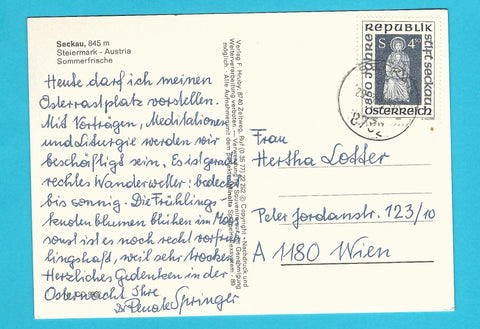 Seckau, 845 m
Steiermark - Austria
Sommerfrische
Heute darf ich meinen
Osterrastplatz vorstellen.
Mit Vorträgen, Meditationen
und Liturgie werden wir
beschäftigt sein. Es ist gerade
rechtes Wanderwetter: bedeckt
bis sonnig. Die Frühlings-
knotenblumen blühen im Moos
sonst ist es noch recht vorfrüh-
lingshaft, weil sehr trocken.
Herzliches Gedenken in der
Osternacht Ihre
Renate Springer
Verlag F. Hruby, 8740 Zeltweg, Ruf (0 35 77) 22 252 © Copyright - Nachdruck und
Weiterverarbeitung verboten.
möglich. Alle Aufnahmen mit dem
REPUBLIK
ÖSTERREICH
850 JAHRE
STIFT SECKAU
S 4
8732
Frau
Hertha Lotter
Peter Jordanstr. 123/10
A 1180 Wien